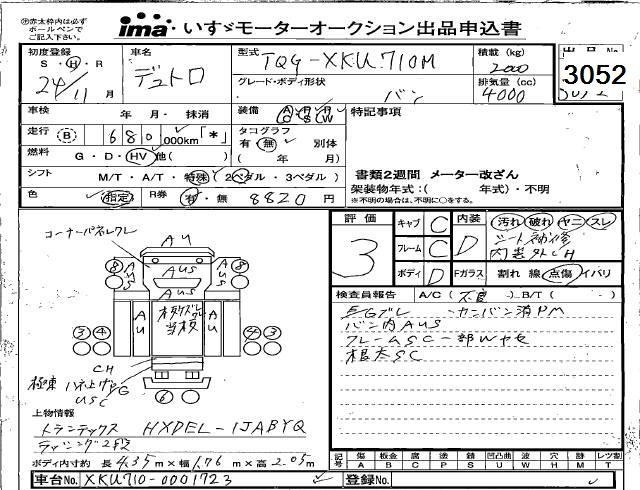 ㊟赤太枠内は必ず
ボールペンで
ご記入下さい。
ima・いすゞモーターオークション出品申込書
初度登録 S・H・R 24/11月
車名 デュトロ
型式 TQG-XKU710M
積載(kg) 2000
出品No. 3052
グレード・ボディ形状 バン
排気量(cc) 4000
車検 年 月・抹消
装備 AC PS PW
特記事項
走行 B 680,000km「*」
タコグラフ 有・無 別体
( 年 月)
燃料 G・D・HV他( )
シフト M/T・A/T・特殊(2ペダル・3ペダル)
書類2週間 メーター改ざん
架装物年式:( 年式)・不明
※不明の場合は、不明に○をする。
色 指定 R券 有・無 8820円
評価 3
キャブ C 内装 D 汚れ 破れ ヤニ スレ
フレーム C
内装外CH
ボディ D Fガラス 割れ 線 点傷 イバリ
検査員報告 A/C(不良)・B/T( )
E/Gブレ カンバン済PM
バン内AUS
フレームSC一部Wヤセ
根太SC
コーナーパネルクレ
AU
8 AUS AUS AUS 8
AU AU
3 4 4 3
CH
6
USC
上物情報
トランテックス HXDEL-1JABYQ
ラッシング2段
ボディ内寸約 長4.35m×幅1.76m×高2.05m
記号 傷A 板金B 腐C 凹P 錆S 凹凸曲U 波W 穴H 跡M レツ割T
車台No. XKU710-0001723
登録No.